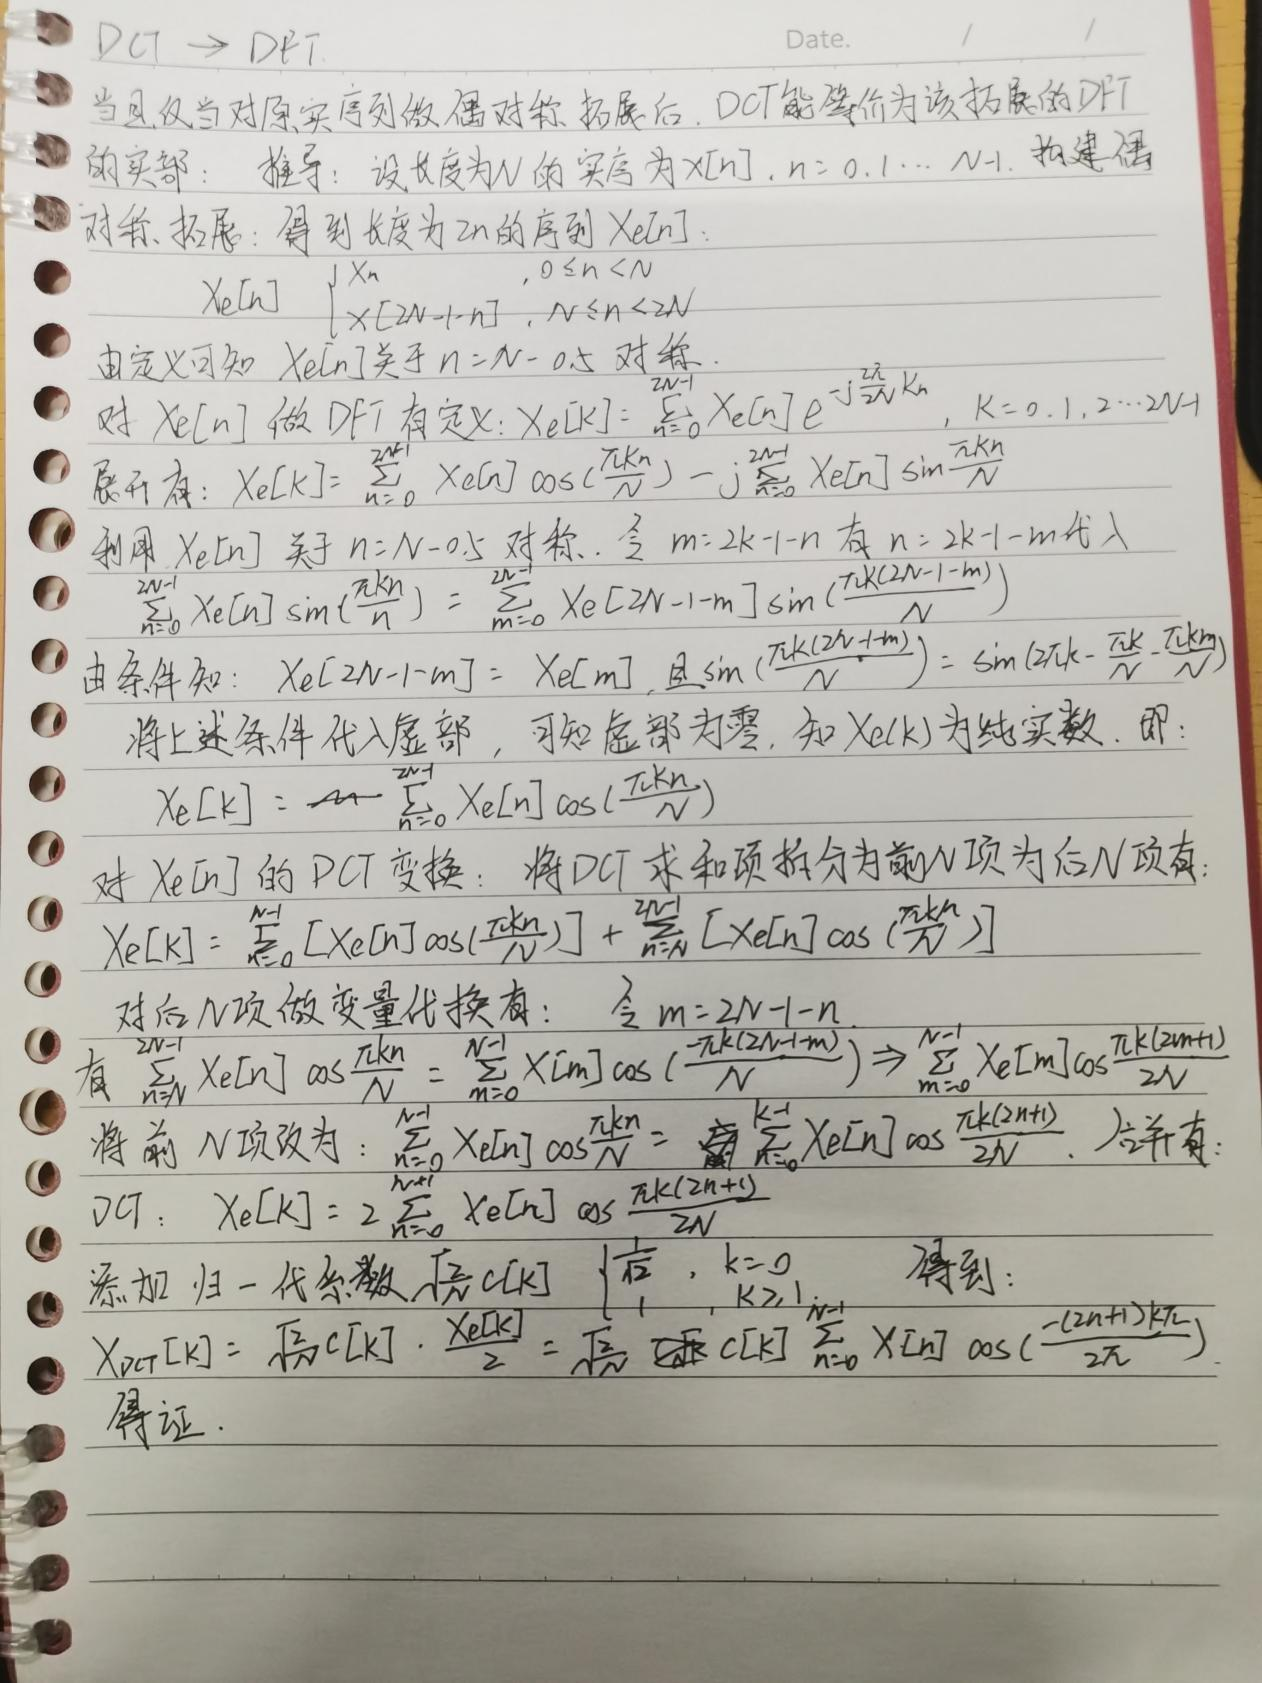 DCT → DFT.
Date. / /
当且仅当对原实序列做偶对称拓展后. DCT能等价为该拓展的DFT
的实部: 推导: 设长度为N的实序为x[n], n=0.1… N-1. 构建偶
对称拓展: 得到长度为2n的序列 Xe[n]:
Xe[n] { Xn , 0≤n<N
X[2N-1-n] , N≤n<2N
由定义可知 Xe[n]关于 n=N-0.5 对称.
对 Xe[n] 做 DFT 有定义: Xe[k]= Σ_{n=0}^{2N-1} Xe[n] e^{-j\frac{2π}{2N}Kn} , K=0.1,2…2N-1
展开有: Xe[k]= Σ_{n=0}^{2N-1} Xe[n] cos(\frac{πkn}{N}) - j Σ_{n=0}^{2N-1} Xe[n] sin \frac{πkn}{N}
利用 Xe[n] 关于 n=N-0.5 对称. 令 m=2k-1-n 有 n=2k-1-m代入
Σ_{n=0}^{2N-1} Xe[n] sin(\frac{πkn}{n}) = Σ_{m=0}^{2N-1} Xe[2N-1-m] sin(\frac{πk(2N-1-m)}{N})
由条件知: Xe[2N-1-m] = Xe[m], 且sin(\frac{πk(2N-1-m)}{N}) = sin(2πk-\frac{πk}{N}-\frac{πkm}{N})
将上述条件代入虚部, 可知虚部为零, 知Xe(k)为纯实数. 即:
Xe[k] = Σ_{n=0}^{2N-1} Xe[n] cos(\frac{πkn}{N})
对 Xe[n] 的 DCT 变换: 将DCT求和项拆分为前N项为后N项有:
Xe[k] = Σ_{n=0}^{N-1} [Xe[n] cos(\frac{πkn}{N})] + Σ_{n=N}^{2N-1} [Xe[n] cos(\frac{πkn}{N})]
对后N项做变量代换有: 令 m=2N-1-n.
有 Σ_{n=N}^{2N-1} Xe[n] cos \frac{πkn}{N} = Σ_{m=0}^{N-1} X[m] cos(\frac{-πk(2N-1-m)}{N}) ⇒ Σ_{m=0}^{N-1} Xe[m] cos \frac{πk(2m+1)}{2N}
将前 N项改为: Σ_{n=0}^{N-1} Xe[n] cos \frac{πkn}{N} = Σ_{n=0}^{k-1} Xe[n] cos \frac{πk(2n+1)}{2N}. 合并有:
DCT: Xe[k] = 2 Σ_{n=0}^{N+1} Xe[n] cos \frac{πk(2n+1)}{2N}
添加归一代系数 \sqrt{\frac{2}{N}} C[k] { \frac{1}{\sqrt{2}} , k=0 得到:
1 , k≥1.
X_{DCT}[k] = \sqrt{\frac{2}{N}} C[k] · \frac{Xe[k]}{2} = \sqrt{\frac{2}{N}} C[k] Σ_{n=0}^{N-1} X[n] cos(\frac{-(2n+1)kπ}{2π}).
得证.